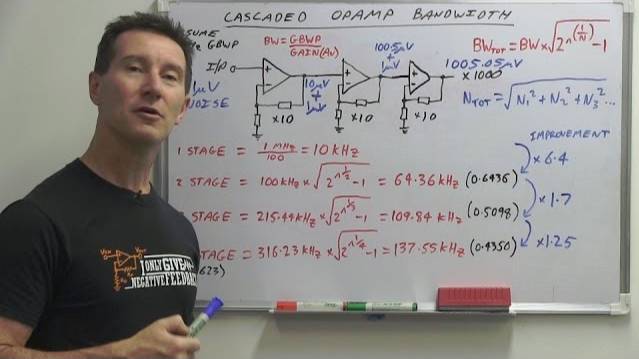 CASCADED OPAMP BANDWIDTH
SUME
GBWP
BW = GBWP / GAIN(AV)
BWTOT = BW x √2^(1/N) - 1
I/P
1µV
NOISE
10µV
+
1µV
100.5µV
+
1µV
1005.05µV
x1000
x10
x10
x10
NTOT = √N1² + N2² + N3² ...
IMPROVEMENT
1 STAGE = 1MHz / 100 = 10kHz
x6.4
2 STAGE = 100kHz x √2^1/2 - 1 = 64.36kHz (0.6436)
x1.7
STAGE = 215.44kHz x √2^1/3 - 1 = 109.84kHz (0.5098)
x1.25
STAGE = 316.23kHz x √2^1/4 - 1 = 137.55kHz (0.4350)
623)
I ONLY GIVE
NEGATIVE FEEDBACK